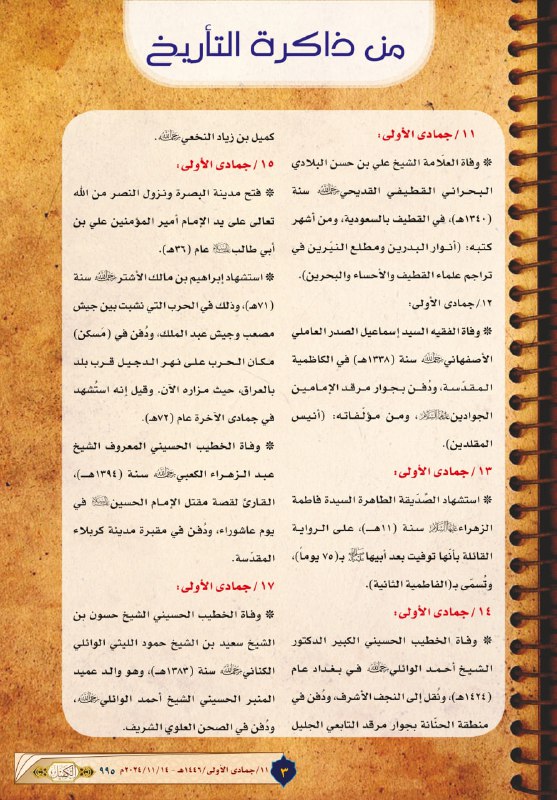 من ذاكرة التأريخ
١١/ جمادى الأولى:
❊ وفاة العلامة الشيخ علي بن حسن البلادي
البحراني القطيفي القديحي رحمه الله سنة
(١٣٤٠هـ)، في القطيف بالسعودية، ومن أشهر
كتبه: (أنوار البدرين ومطلع النيرين في
تراجم علماء القطيف والأحساء والبحرين).
١٢/ جمادى الأولى:
❊ وفاة الفقيه السيد إسماعيل الصدر العاملي
الأصفهاني رحمه الله سنة (١٣٣٨هـ) في الكاظمية
المقدّسة، ودُفن بجوار مرقد الإمامين
الجوادين عليهما السلام، ومن مؤلفاته: (أنيس
المقلدين).
١٣/ جمادى الأولى:
❊ استشهاد الصّديقة الطاهرة السيدة فاطمة
الزهراء عليها السلام سنة (١١هـ)، على الرواية
القائلة بأنها توفيت بعد أبيها ﷺ بـ(٧٥ يوماً)،
وتُسمّى بـ(الفاطمية الثانية).
١٤/ جمادى الأولى:
❊ وفاة الخطيب الحسيني الكبير الدكتور
الشيخ أحمد الوائلي رحمه الله في بغداد عام
(١٤٢٤هـ)، ونُقل إلى النجف الأشرف، ودُفن في
منطقة الحنّانة بجوار مرقد التابعي الجليل
كميل بن زياد النخعي رحمه الله.
١٥/ جمادى الأولى:
❊ فتح مدينة البصرة ونزول النصر من الله
تعالى على يد الإمام أمير المؤمنين علي بن
أبي طالب عليه السلام عام (٣٦هـ).
❊ استشهاد إبراهيم بن مالك الأشتر رحمه الله سنة
(٧١هـ)، وذلك في الحرب التي نشبت بين جيش
مصعب وجيش عبد الملك، ودُفن في (مَسكن)
مكان الحرب على نهر الدجيل قرب بلد
بالعراق، حيث مزاره الآن. وقيل إنه استُشهد
في جمادى الآخرة عام (٧٢هـ).
❊ وفاة الخطيب الحسيني المعروف الشيخ
عبد الزهراء الكعبي رحمه الله سنة (١٣٩٤هـ)،
القارئ لقصة مقتل الإمام الحسين عليه السلام في
يوم عاشوراء، ودُفن في مقبرة مدينة كربلاء
المقدّسة.
١٧/ جمادى الأولى:
❊ وفاة الخطيب الحسيني الشيخ حسون بن
الشيخ سعيد بن الشيخ حمود الليثي الوائلي
الكناني رحمه الله سنة (١٣٨٣هـ)، وهو والد عميد
المنبر الحسيني الشيخ أحمد الوائلي رحمه الله،
ودُفن في الصحن العلوي الشريف.
٣
١١/ جمادى الأولى/ ١٤٤٦هـ - ١٤/ ١١/ ٢٠٢٤م
٩٩٥
الكفيل